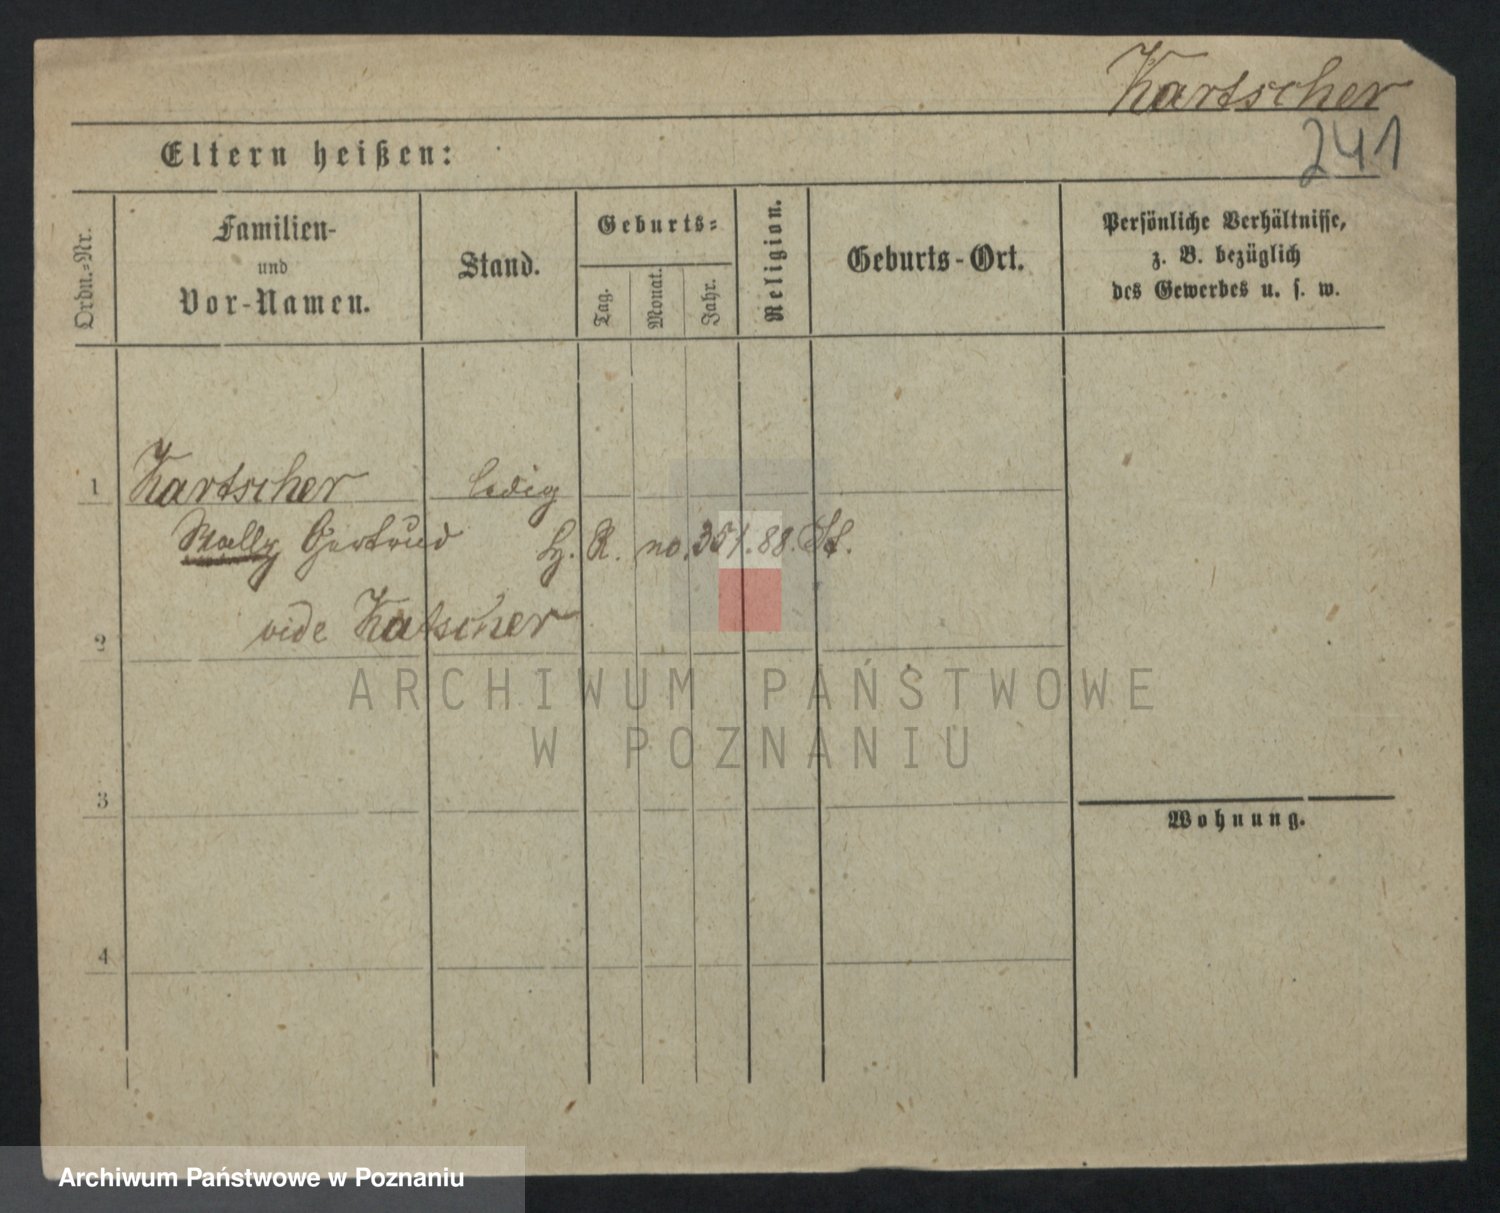 Kartscher
241
Eltern heißen:
Ordn.-Nr.
Familien-
und
Vor-Namen.
Stand.
Geburts-
Tag.
Monat.
Jahr.
Religion.
Geburts-Ort.
Persönliche Verhältnisse,
z. B. bezüglich
des Gewerbes u. s. w.
1 Kartscher ledig
Wally Gertrud H. R. no. 351.88. St.
vide Katscher
2
ARCHIWUM PAŃSTWOWE
W POZNANIU
3
Wohnung.
4
Archiwum Państwowe w Poznaniu